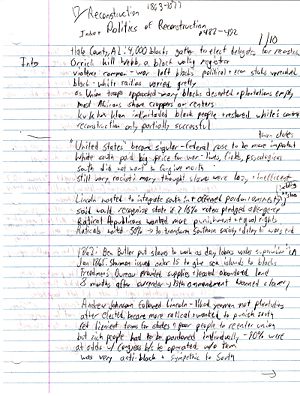 Reconstruction 1863-1877
Politics of Reconstruction
p487-492
1/10
Intro
Hale County, AL: 4,000 blacks gather to elect delegates for
Orrick Hill Webb, a black voting register
violence common - war left blacks political + econ stake
black - white
as Union troops approached many blacks deserted plantations
most Africans share croppers or renters
ku klux klan intimidated black people
reconstruction only partially successful
than states
United States became singular - federal rose to be more important
white south paid big price for war - lives, fields, psychological
south did not want to forgive north
still very racist: many thought slaves were lazy, inefficient
Lincoln wanted to integrate south + offered pardon
said would recognize state if 10% voters pledged allegiance
Radical Republicans wanted more punishment + equal rights
Radicals wanted 50% → to transform Southern society + delay
1862: Ben Butler put slaves to work as day labors under
Jan 1865. Sherman issued order 15 to give sea islands to blacks
Freedmen's Bureau provided supplies + leased abandoned land
8 months after surrender 13th amendment became law
Andrew Johnson followed Lincoln - liked yeomen not planters
after elected became more radical: wanted to punish south
set lenient terms for states + poor people to reenter union
but rich people had to be pardoned individually - 90% were
at odds w/ Congress b/c he operated w/o them
was very anti-black + sympathetic to South